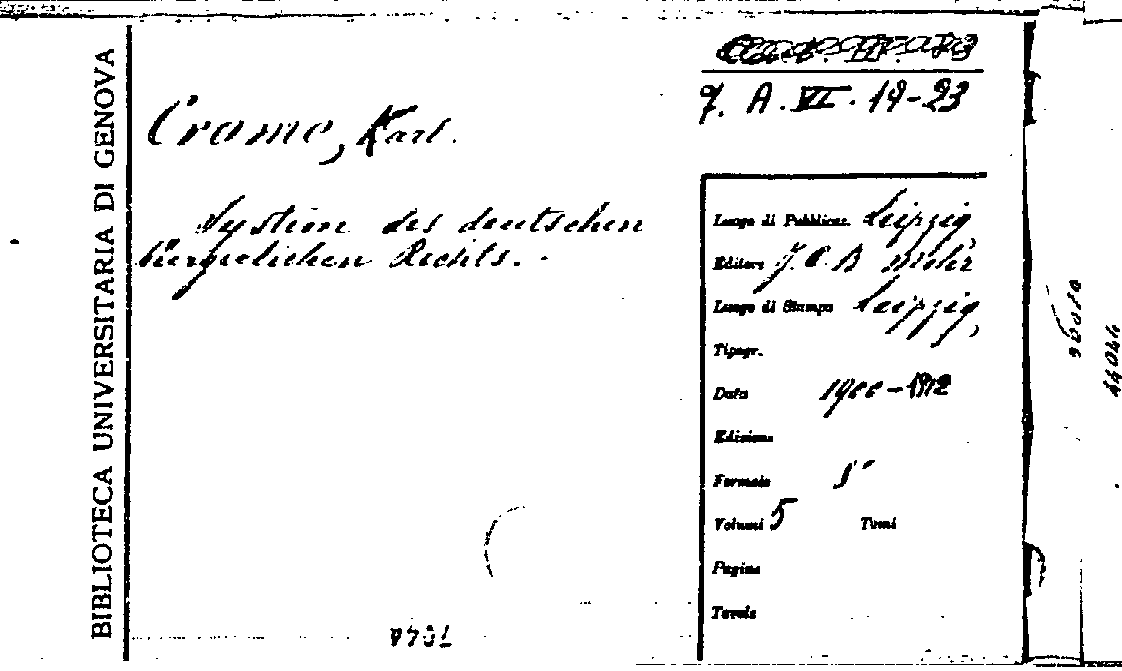 BIBLIOTECA UNIVERSITARIA DI GENOVA
7. A. VI. 19-23
Crome, Karl.
System des deutschen
bürgerlichen Rechts.
Luogo di Pubblicaz. Leipzig
Editore J. C. B Mohr
Luogo di Stampa Leipzig,
Tipogr.
Data 1900-1912
Edizione
Formato 8°
Volumi 5 Tomi
Pagine
Tavole
44044